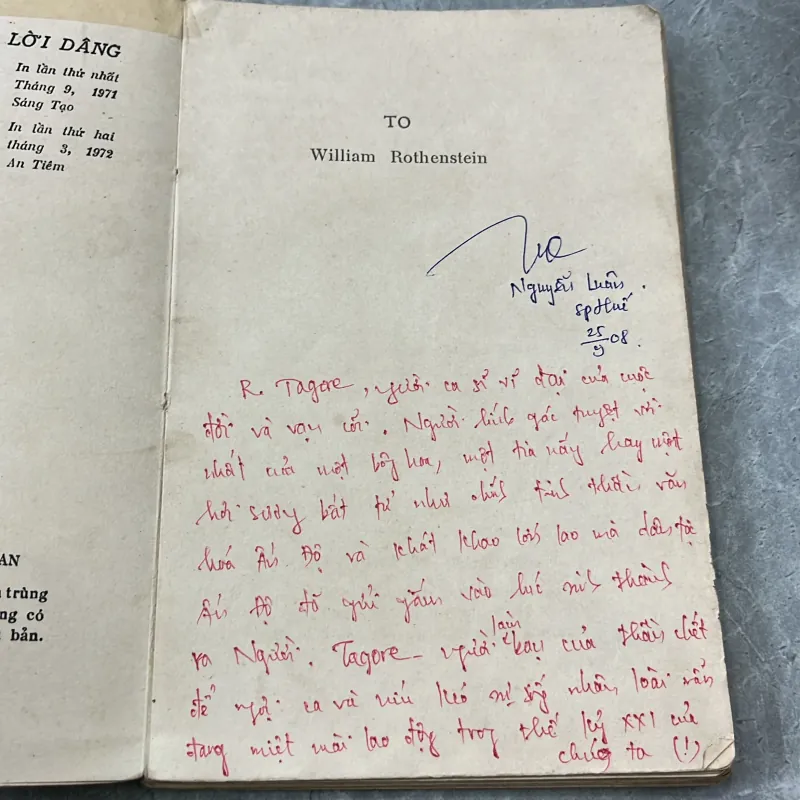 LỜI DÂNG
In lần thứ nhất
Tháng 9, 1971
Sáng Tạo
In lần thứ hai
tháng 3, 1972
An Tiêm
AN
trùng
ng có
bản.
TO
William Rothenstein
Nguyễn Luân.
sp Huế
25/9 08.
R. Tagore, người ca sĩ vĩ đại của cuộc
đời và vạn cõi. Người lính gác tuyệt vời
nhất của một bông hoa, một tia nắng hay một
hơi sương bất tử như chính tinh thần văn
hoá Ấn Độ và khát khao lớn lao mà dân tộc
Ấn Độ đã gửi gắm vào lúc sinh thành
ra Người. Tagore - người làm bạn của thần chết
để ngợi ca và níu kéo sự sống nhân loài vẫn
đang miệt mài lao động trong thế kỷ XXI của
chúng ta (!)